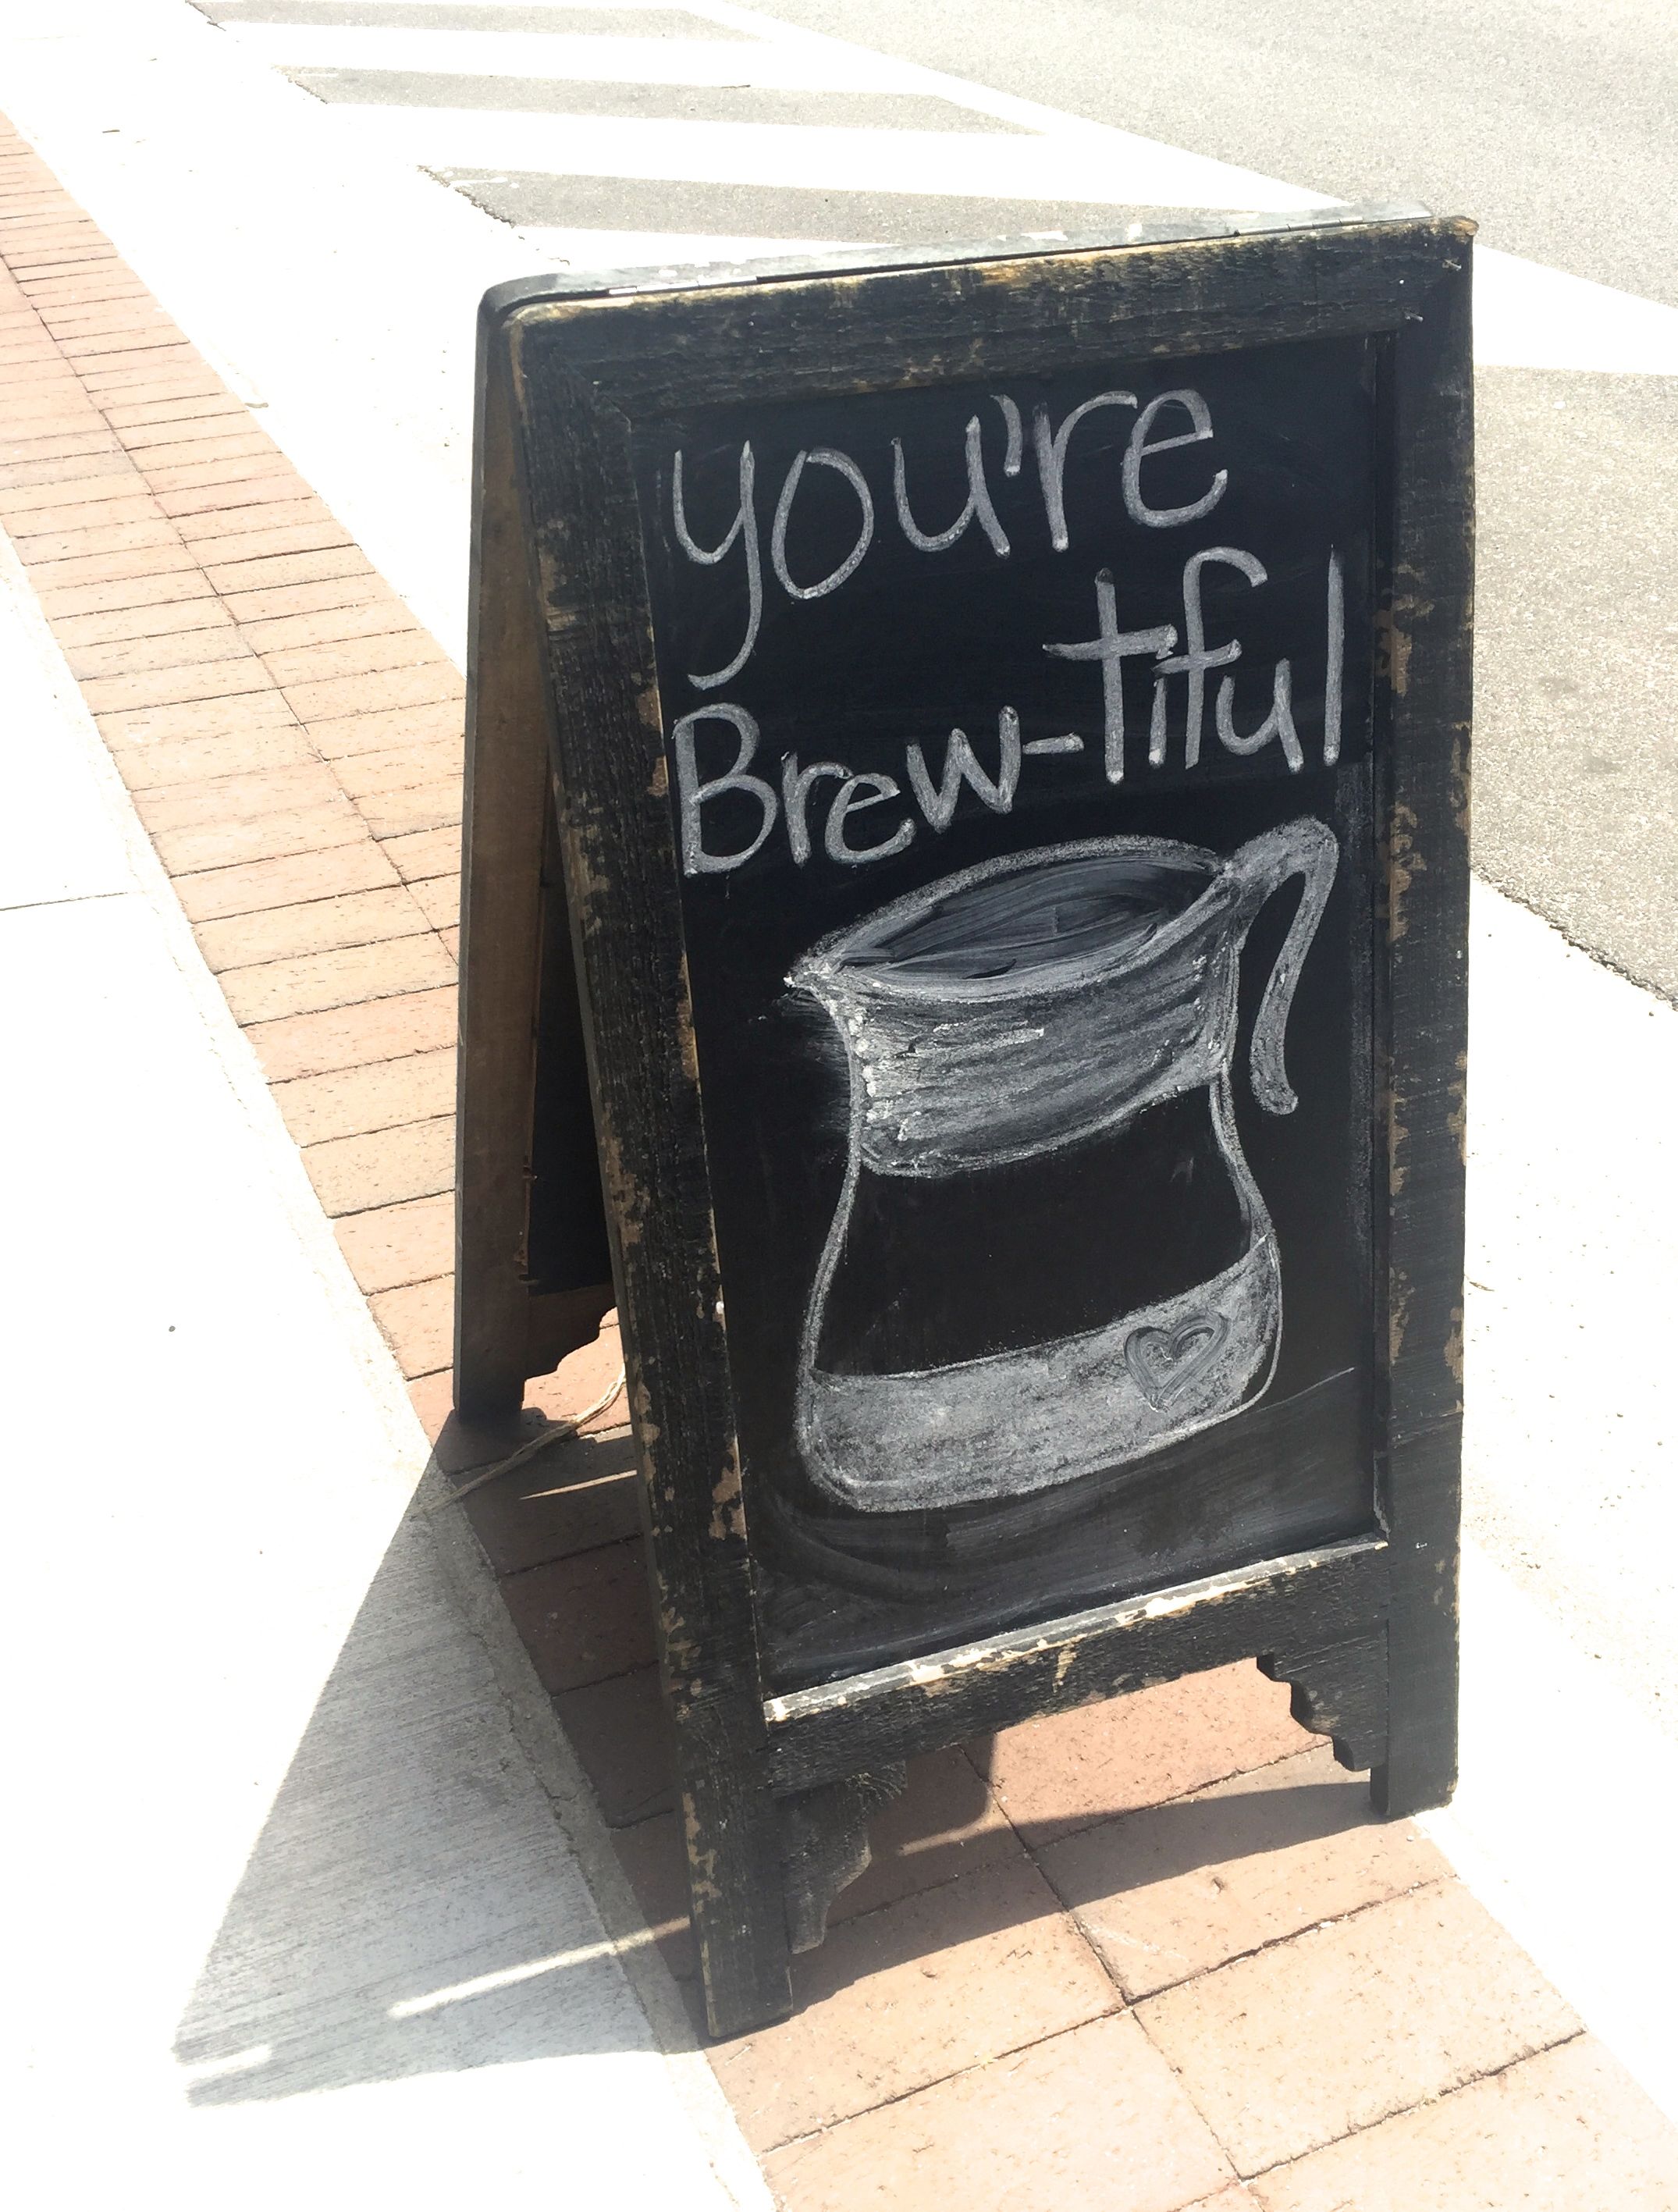 you're
Brew-tiful